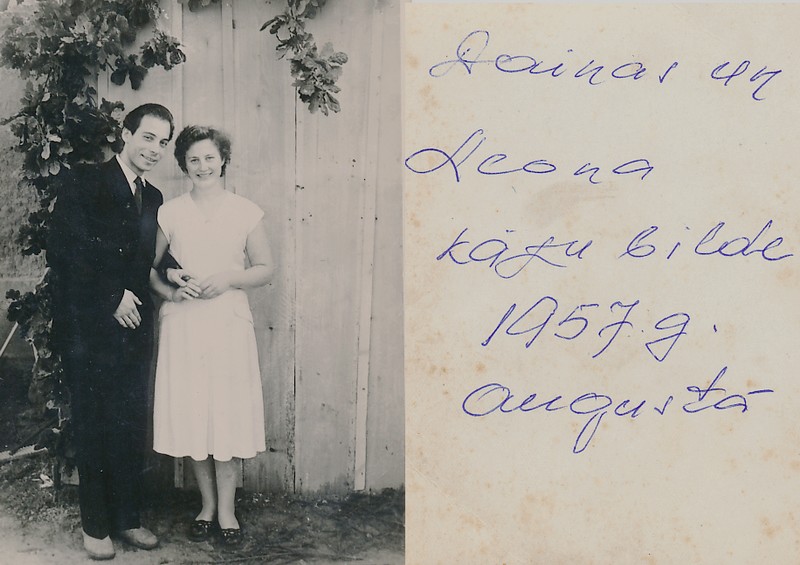 Dainas un
Leona
kāzu bilde
1957.g.
augustā